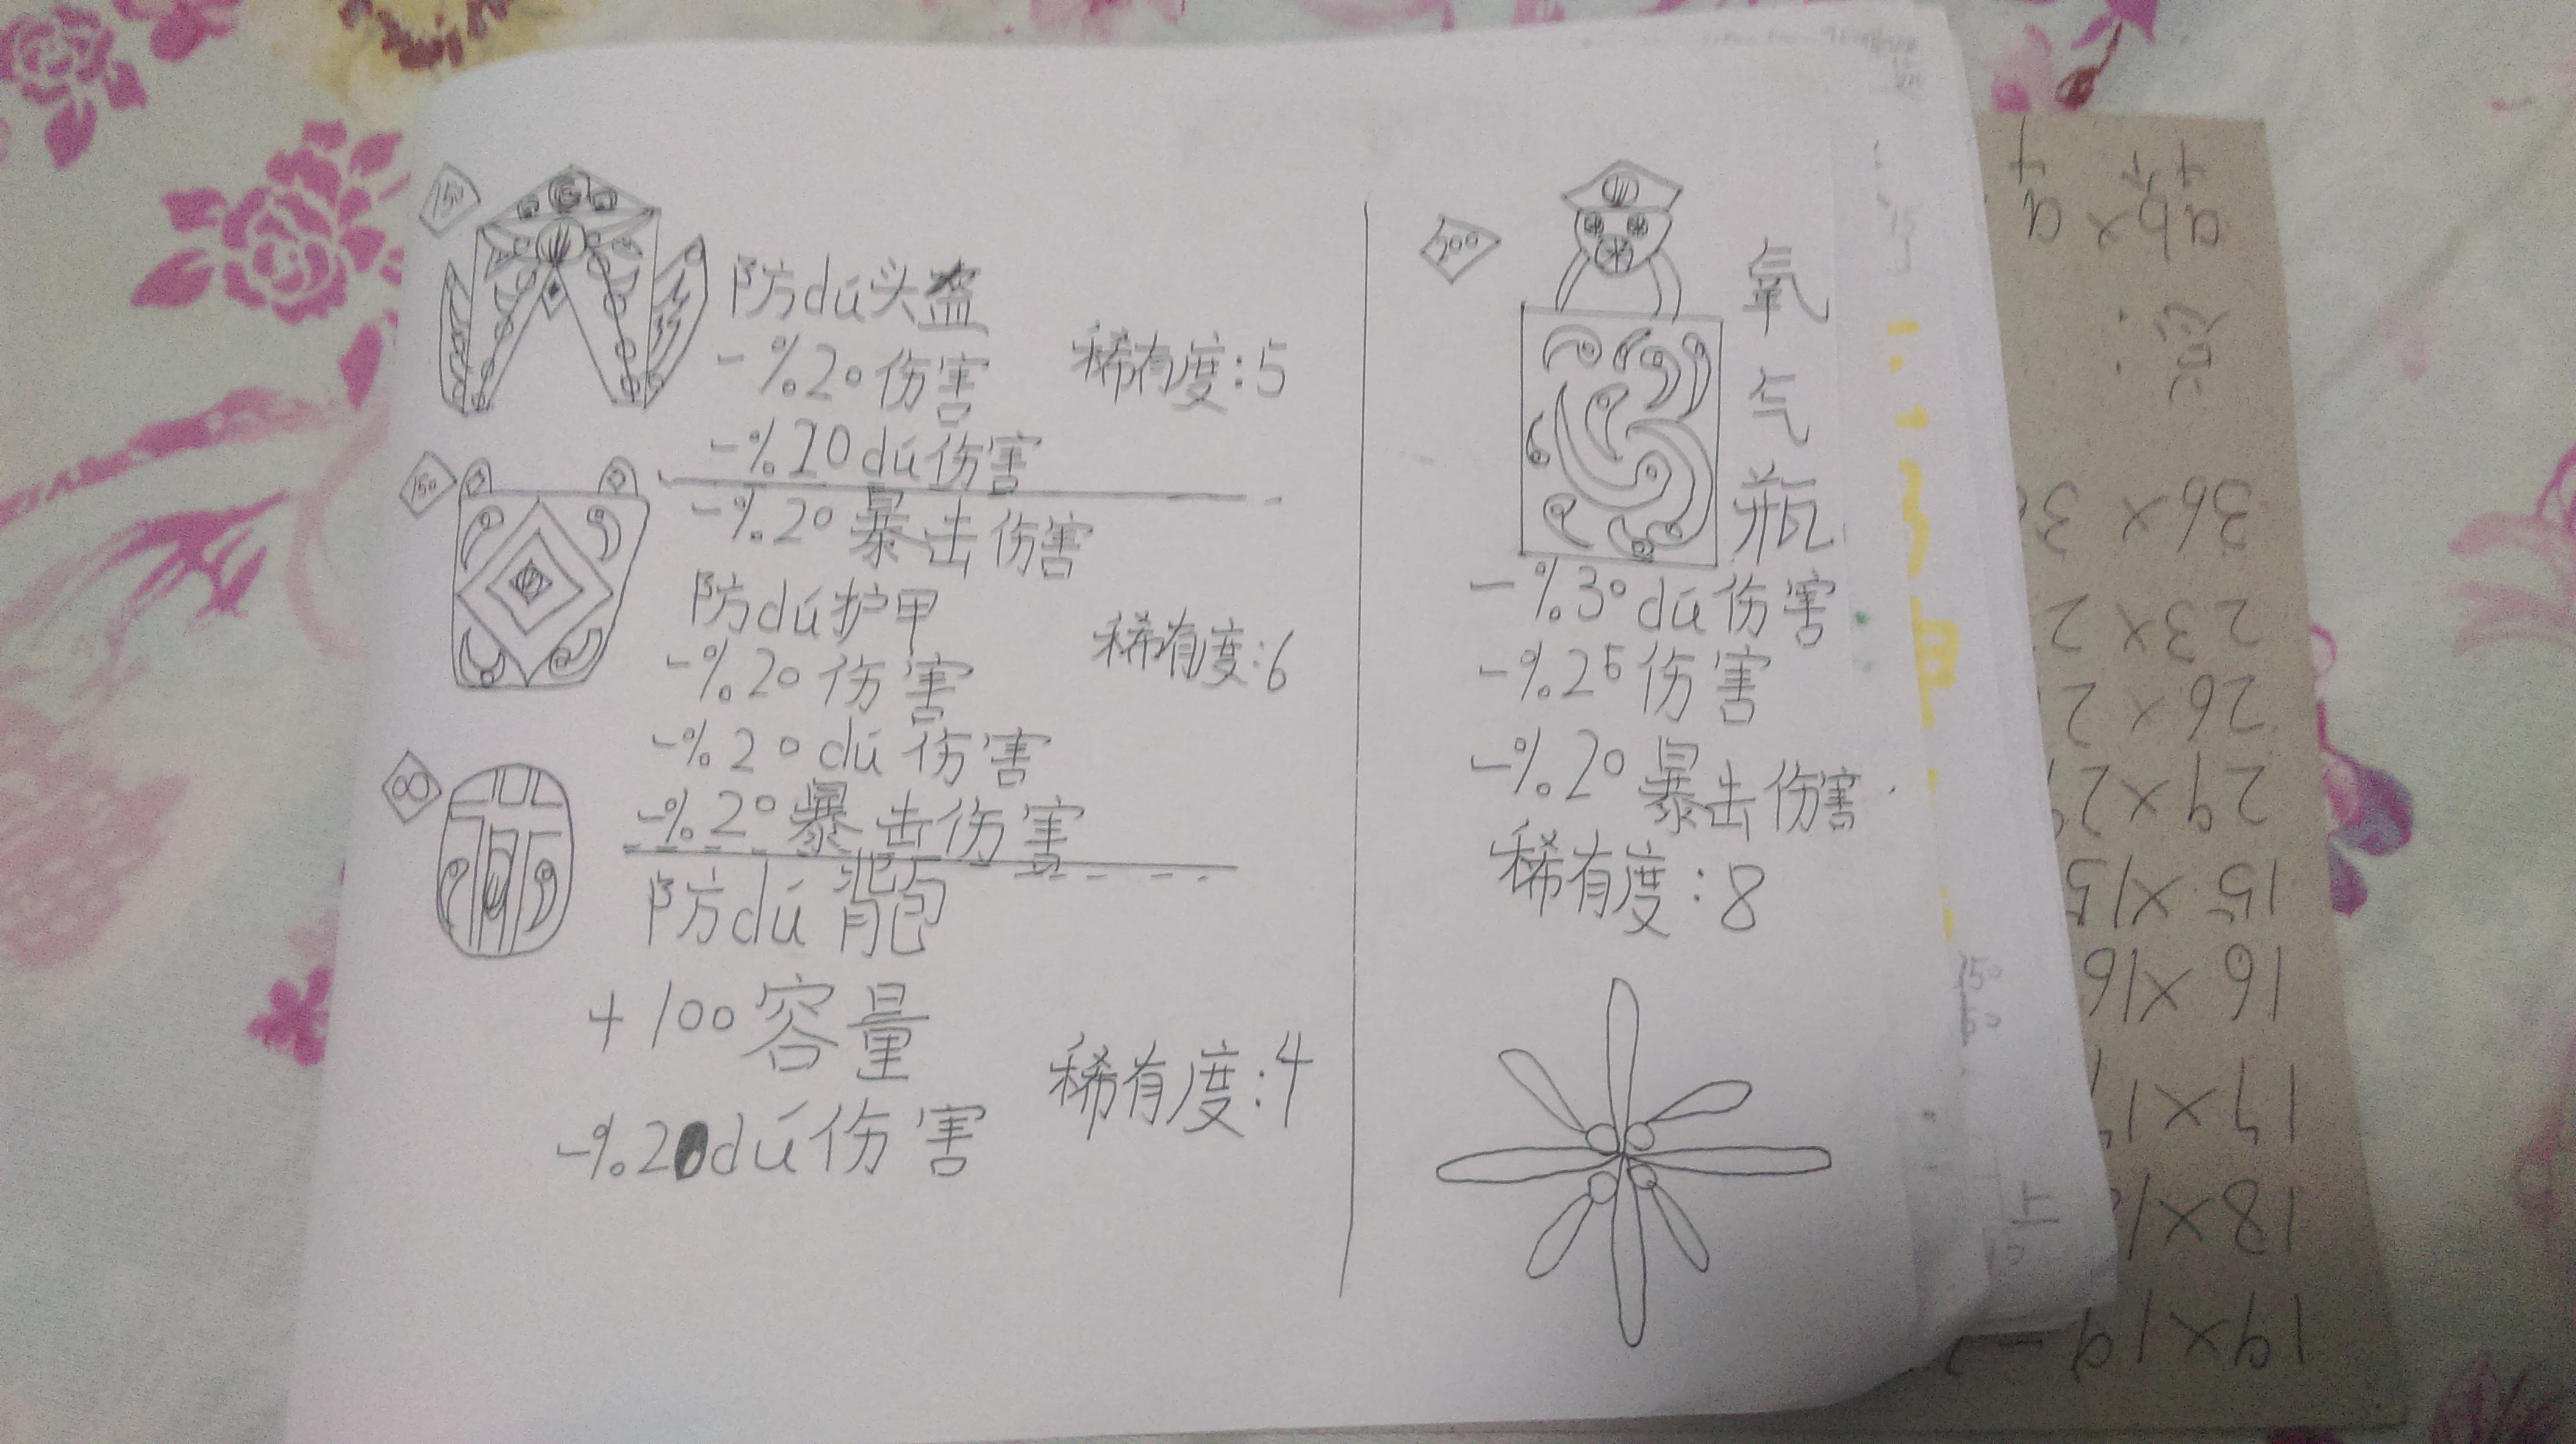 150
防dú头盔
-%20伤害
稀有度:5
-%20dú伤害
150
-%20暴击伤害
防dú护甲
-%20伤害
稀有度:6
-%20dú伤害
80
-%20暴击伤害
防dú背包
+100容量
稀有度:4
-%20dú伤害
200
氧
气
瓶
-%30dú伤害
-%25伤害
-%20暴击伤害
稀有度:8
19×19=
18×1
17×17
16×16
15×15
29×29
26×2
23×2
36×3